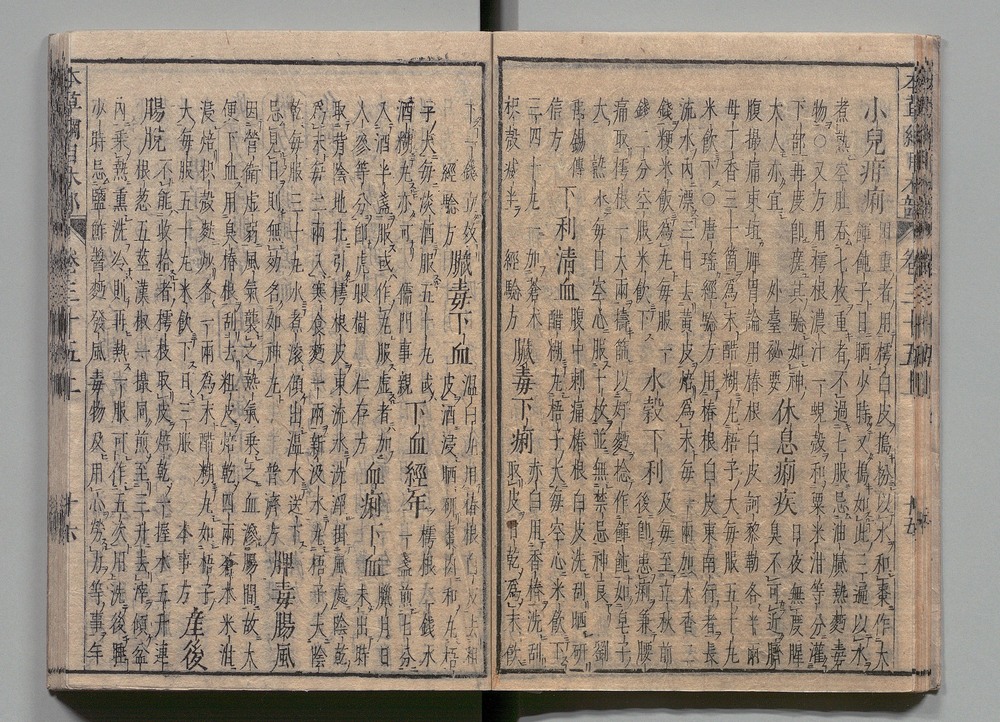 小兒疳痢 困重者用樗白皮搗粉以水和棗作大
煮熟空肚吞七枚重者不過七服忌油膩熱麪毒
物〇又方用樗根濃汁一蜆殼和粟米泔等分灌
下部再度即瘥其驗如神
大人亦宜 外臺秘要 休息痢疾 日夜無度腥臭不可近臍
腹撮痛東垣脾胃論用椿根白皮訶黎勒各半兩
母丁香三十箇爲末醋糊丸梧子大每服五十丸
米飲下〇唐瑤經驗方用椿根白皮東南行者長
流水內漂三日去黃皮焙爲末每一兩加木香二
錢粳米飯爲丸每服 水穀下利 及每至立秋前後即患痢兼腰
痛取樗根一大兩搗篩以好麪捻作餛飩如皂子
大 熱水每日空心服十枚並無禁忌神良 劉禹錫傳信方
下利清血 腹中刺痛椿根白皮洗刮晒研醋糊丸梧子大每空心米飲下
三四十丸一加蒼木 經驗方 臟毒下痢 赤白用香椿洗刮取皮日乾爲末飲
下一錢立效 經驗方 臟毒下血 溫白丸用椿根白皮去粗皮酒浸晒研棗肉和丸梧
子大每淡酒服五十丸或酒糊丸亦可 儒門事親 下血經年 樗根三錢水一盞煎七分
入酒半盞服或作丸服虛者加人參等分即虎眼樹 仁存方 血痢下血 臘月日未出時
取背陰地北引樗根皮東流水洗淨掛風處陰乾
爲末每二兩入寒食麪一兩新汲水丸梧子大陰
乾每服三十丸水煮滾傾出溫水送下
忌見日則無効名如神丸 普濟方 脾毒腸風
因營衛虛弱風氣襲之熱氣乘之血滲腸間故大
便下血用臭椿根刮去粗皮焙乾四兩蒼木米泔
浸焙枳殼麩炒各一兩爲末醋糊丸如梧子
大每服五十丸米飲下日三服 本事方 產後
腸脫 不能收拾者樗枝取皮焙乾一握水五升連根葱五莖漢椒一撮同煎至三升去滓傾盆
內乘熱熏洗冷則再熱一服可作五次用洗後睡
少時忌鹽酢醬麪發風毒物及用心勞力等事年